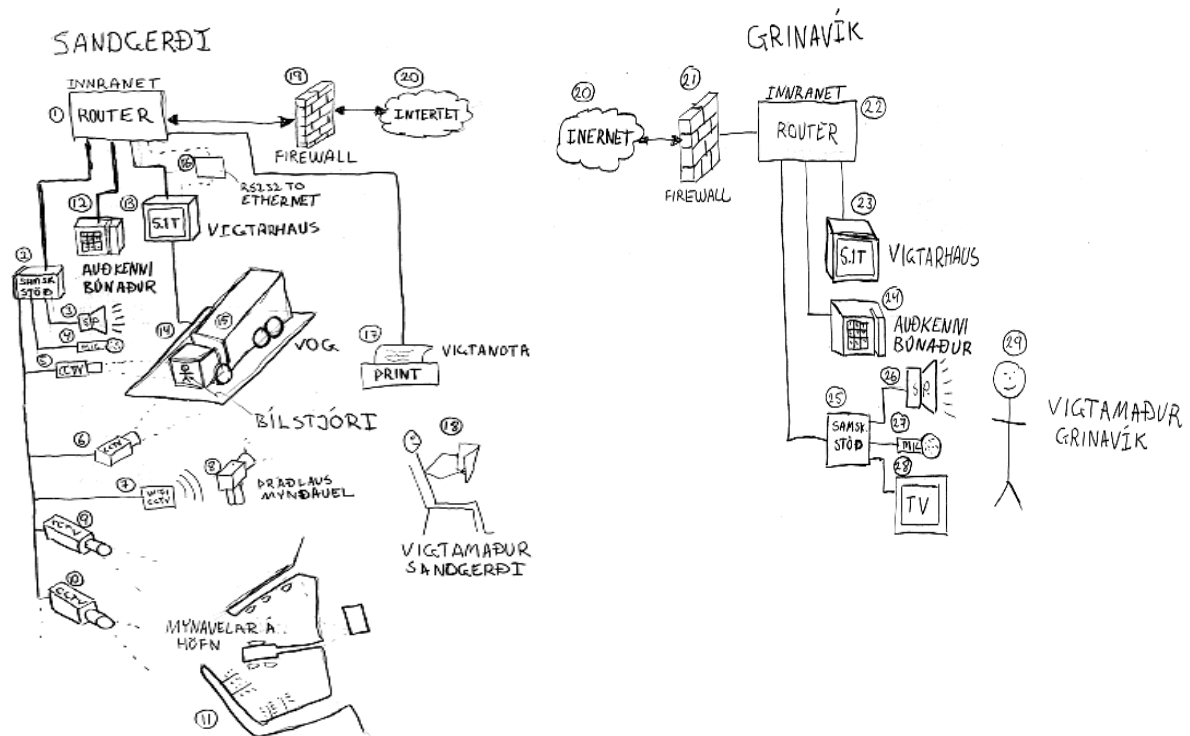 SANDGERÐI
INNRANET
① ROUTER
⑲
FIREWALL
⑳
INTERTET
⑯
RS232 TO
ETHERNET
⑫
AUÐKENNI
BÚNAÐUR
⑬
S.IT
VIGTARHAUS
②
SAMSK
STÖÐ
③ SP.
④ MIC
⑤ CCTV
⑭ ⑮
VOG
BÍLSTJÓRI
⑰
VIGTANOTA
PRINT
⑥ CCTV
⑦ WIFI
CCTV
⑧
ÞRÁÐLAUS
MYNDAUEL
⑱
VIGTAMAÐUR
SANDGERÐI
⑨ CCTV
⑩ CCTV
MYNAVELAR Á
HÖFN
⑪
GRINAVÍK
⑳
INERNET
㉑
FIREWALL
INNRANET
ROUTER
㉒
㉓
S.IT
VIGTARHAUS
㉔
AUÐKENNI
BÚNAÐUR
㉕
SAMSK.
STÖÐ
㉖ SP.
㉗
MIC
㉘
TV
㉙
VIGTAMAÐUR
GRINAVÍK